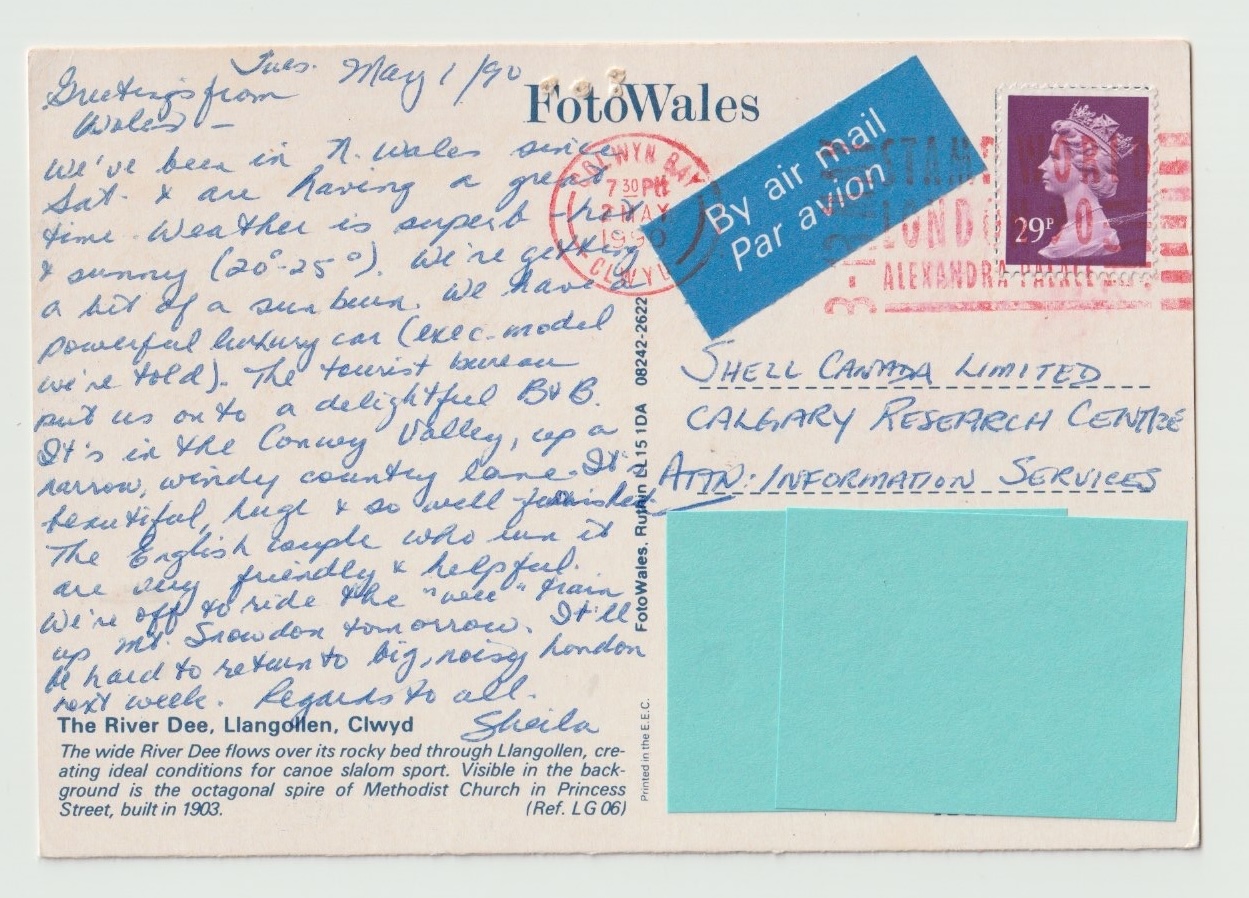 Tues. May 1/90
Greetings from
Wales –
We've been in N. Wales since
Sat. & are having a great
time. Weather is superb – hot
& sunny (20°-25°). We're getting
a bit of a sunburn. We have a
powerful luxury car (exec. model
we're told). The tourist bureau
put us on to a delightful B&B.
It's in the Conwy Valley, up a
narrow, windy country lane. It's
beautiful, huge & so well furnished.
The English couple who run it
are very friendly & helpful.
We're off to ride the "wee" train
up Mt. Snowdon tomorrow. It'll
be hard to return to big, noisy London
next week. Regards to all.
Sheila
The River Dee, Llangollen, Clwyd
The wide River Dee flows over its rocky bed through Llangollen, cre-
ating ideal conditions for canoe slalom sport. Visible in the back-
ground is the octagonal spire of Methodist Church in Princess
Street, built in 1903. (Ref. LG 06)
FotoWales
FotoWales, Ruthin LL15 1DA 08242-2622
Printed in the E.E.C.
COLWYN BAY
7 30 PM
2 MAY
1990
CLWYD
By air mail
Par avion
STAMP WORLD
LONDON 90
ALEXANDRA PALACE
29P
SHELL CANADA LIMITED
CALGARY RESEARCH CENTRE
ATTN: INFORMATION SERVICES